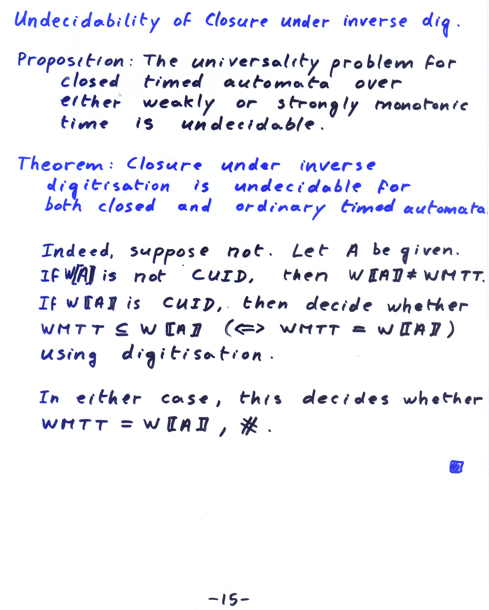 Undecidability of Closure under inverse dig.
Proposition: The universality problem for
closed timed automata over
either weakly or strongly monotonic
time is undecidable.
Theorem: Closure under inverse
digitisation is undecidable for
both closed and ordinary timed automata.
Indeed, suppose not. Let A be given.
If W⟦A⟧ is not CUID, then W⟦A⟧ ≠ WMTT.
If W⟦A⟧ is CUID, then decide whether
WMTT ⊆ W⟦A⟧ (⟺ WMTT = W⟦A⟧)
using digitisation.
In either case, this decides whether
WMTT = W⟦A⟧, #.
-15-